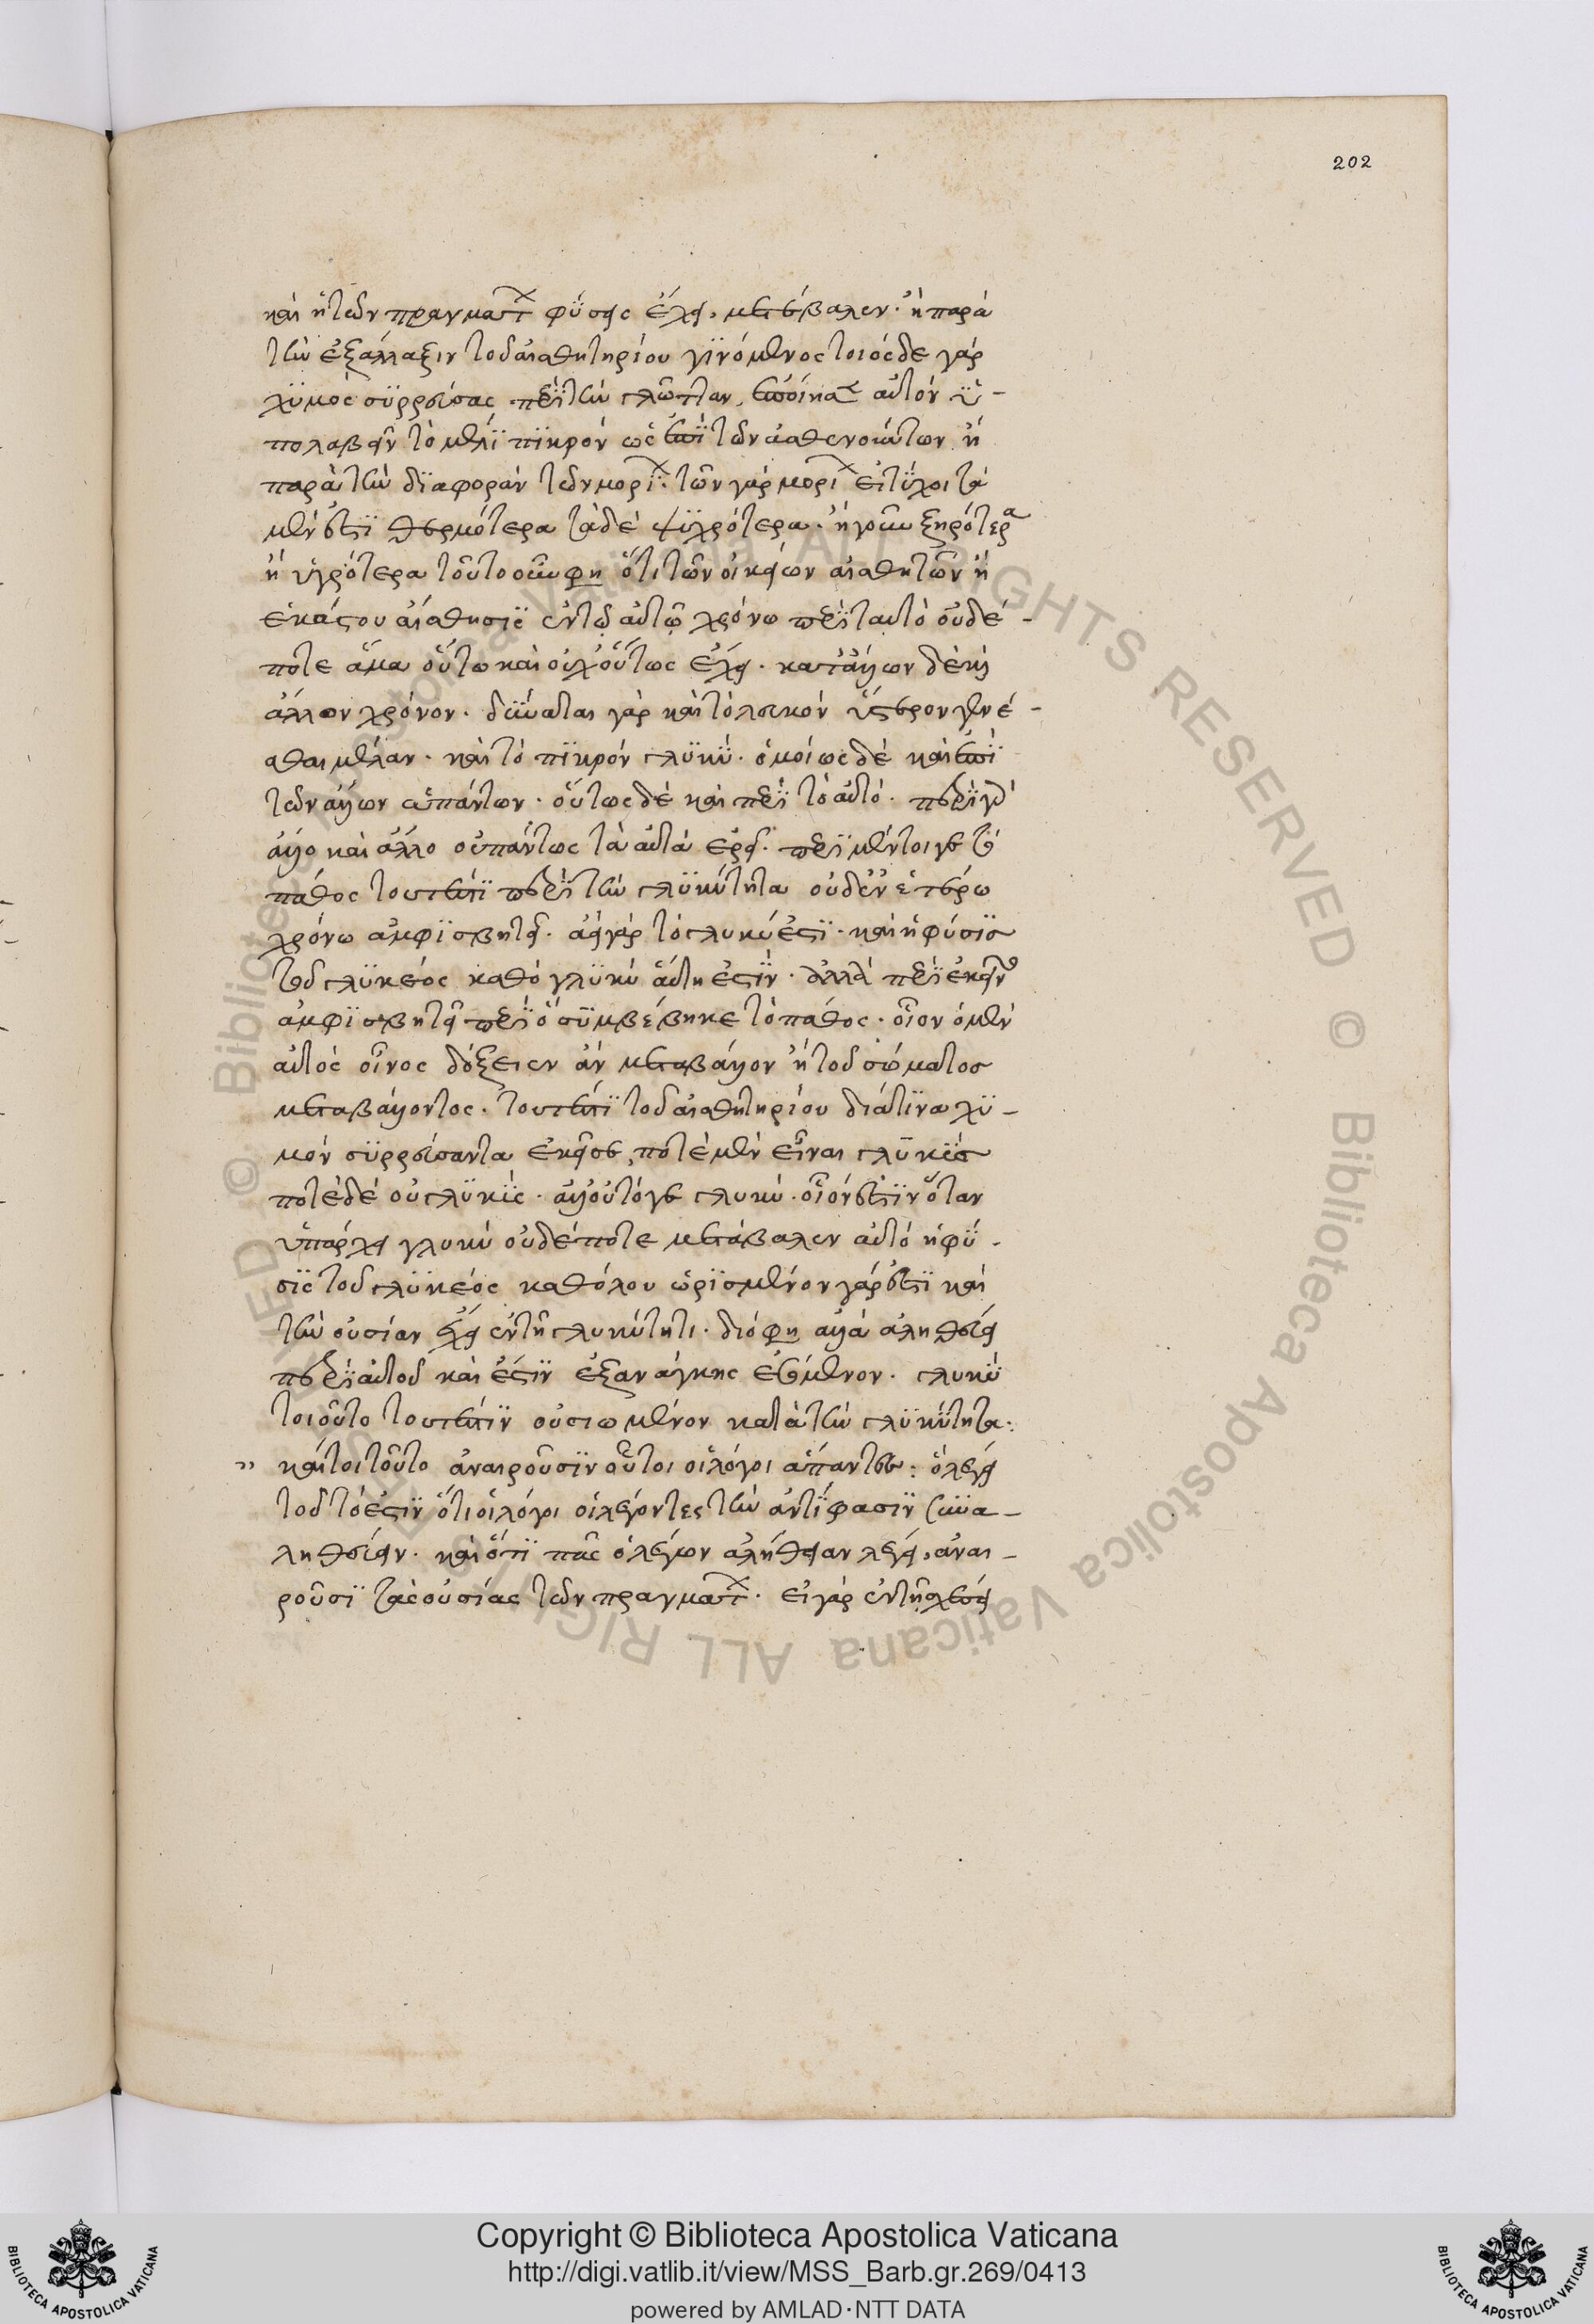 202
καὶ ἡ τῶν πραγμάτ φύσις ἔχει, μετέβαλεν. ἢ παρὰ
τὴν ἐξάλλαξιν τοῦ αἰσθητηρίου γϊνόμενος τοιόςδε γὰρ
χϋμὸς συῤῥεύσας περὶ τὴν γλῶτταν, ἐποίησ αὐτὸν ὑ-
πολαβεῖν τὸ μέλι πϊκρὸν ὡς ἐπὶ τῶν ἀσθενούντων ἢ
παρὰ τὴν δϊαφορὰν τῶν μορί. τῶν γὰρ μορί εἰ τύχοι τὰ
μέν ἐστι θερμότερα τὰ δὲ ψϋχρότερα. ἤγουν ξηρότερα
ἢ ὑγρότερα τοῦτο οὖν φη ὅτι τῶν οἰκείων αἰσθητῶν ἡ
ἑκάστου αἴσθησις ἐν τῷ αὐτῷ χρόνω περὶ ταυτὸ οὐδέ-
ποτε ἅμα οὕτω καὶ οὐχ οὕτως ἔχει. κατ' ἄλλον δὲ καὶ
ἄλλον χρόνον. δύναται γὰρ καὶ τὸ λευκὸν ὕστερον γενέ-
σθαι μέλαν. καὶ τὸ πϊκρὸν γλϋκύ. ὁμοίως δὲ καὶ ἐπὶ
τῶν ἄλλων ἁπάντων. οὕτως δὲ καὶ περὶ τὸ αὐτό. περὶ γὰρ
ἄλλο καὶ ἄλλο οὐ πάντως τὰ αὐτὰ ἐρεῖ. περὶ μέντοιγε τὸ
πάθος τουτέστι περὶ τὴν γλϋκύτητα οὐδ' ἐν ἑτέρω
χρόνω ἀμφϊσβητεῖ. ἀεὶ γὰρ τὸ γλυκύ ἐστϊ. καὶ ἡ φύσϊς
τοῦ γλϋκέος καθὸ γλϋκὺ αὕτη ἐστΐν. ἀλλὰ περὶ ἐκεῖνο
ἀμφϊσβητεῖ περὶ ὃ σϋμβέβηκε τὸ πάθος. οἷον ὁ μὲν
αὐτὸς οἶνος δόξειεν ἂν μεταβάλλον ἢ τοῦ σώματος
μεταβάλλοντος. τουτέστι τοῦ αἰσθητηρίου διά τϊνα χϋ-
μὸν συῤῥεύσαντα ἐκεῖσε, ποτὲ μὲν εἶναι γλϋκὺς
ποτὲ δὲ οὐ γλϋκύς. ἀλλ' οὐ τόγε γλυκύ. οἷόν ἐστϊν ὅταν
ὑπάρχει γλυκὺ οὐδέποτε μετάβαλεν αὐτὸ ἡ φύ-
σϊς τοῦ γλϋκέος καθόλου ὡρϊσμένον γάρ ἐστϊ καὶ
τὴν οὐσίαν ἔχει ἐν τῇ γλυκύτητι. διό φη ἀλλὰ ἀληθεύει
περὶ αὐτοῦ καὶ ἔστϊν ἐξ ἀνάγκης ἐσόμενον. γλυκὺ
τοιοῦτο τουτέστϊν οὐσιωμένον κατὰ τὴν γλϋκύτητα:
" καίτοι τοῦτο ἀναιροῦσϊν οὗτοι οἱ λόγοι ἅπαντες: ὃ λέγει
τοῦτό ἐστϊν ὅτι οἱ λόγοι οἱ λέγοντες τὴν ἀντίφασϊν συνα-
ληθεύειν. καὶ ὅτι πᾶς ὁ λέγων ἀλήθειαν λέγει, ἀναι-
ροῦσϊ τὰς οὐσίας τῶν πραγμάτ. εἰ γὰρ ἐν τῇ χέσει
Copyright © Biblioteca Apostolica Vaticana
http://digi.vatlib.it/view/MSS_Barb.gr.269/0413
powered by AMLAD·NTT DATA